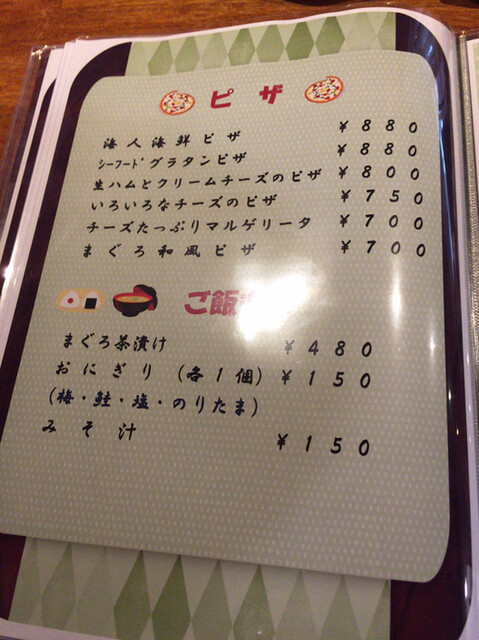 ピザ
海人海鮮ピザ ￥880
シーフードグラタンピザ ￥880
生ハムとクリームチーズのピザ ￥800
いろいろなチーズのピザ ￥750
チーズたっぷりマルゲリータ ￥700
まぐろ和風ピザ ￥700
ご飯
まぐろ茶漬け ￥480
おにぎり (各1個) ￥150
(梅・鮭・塩・のりたま)
みそ汁 ￥150